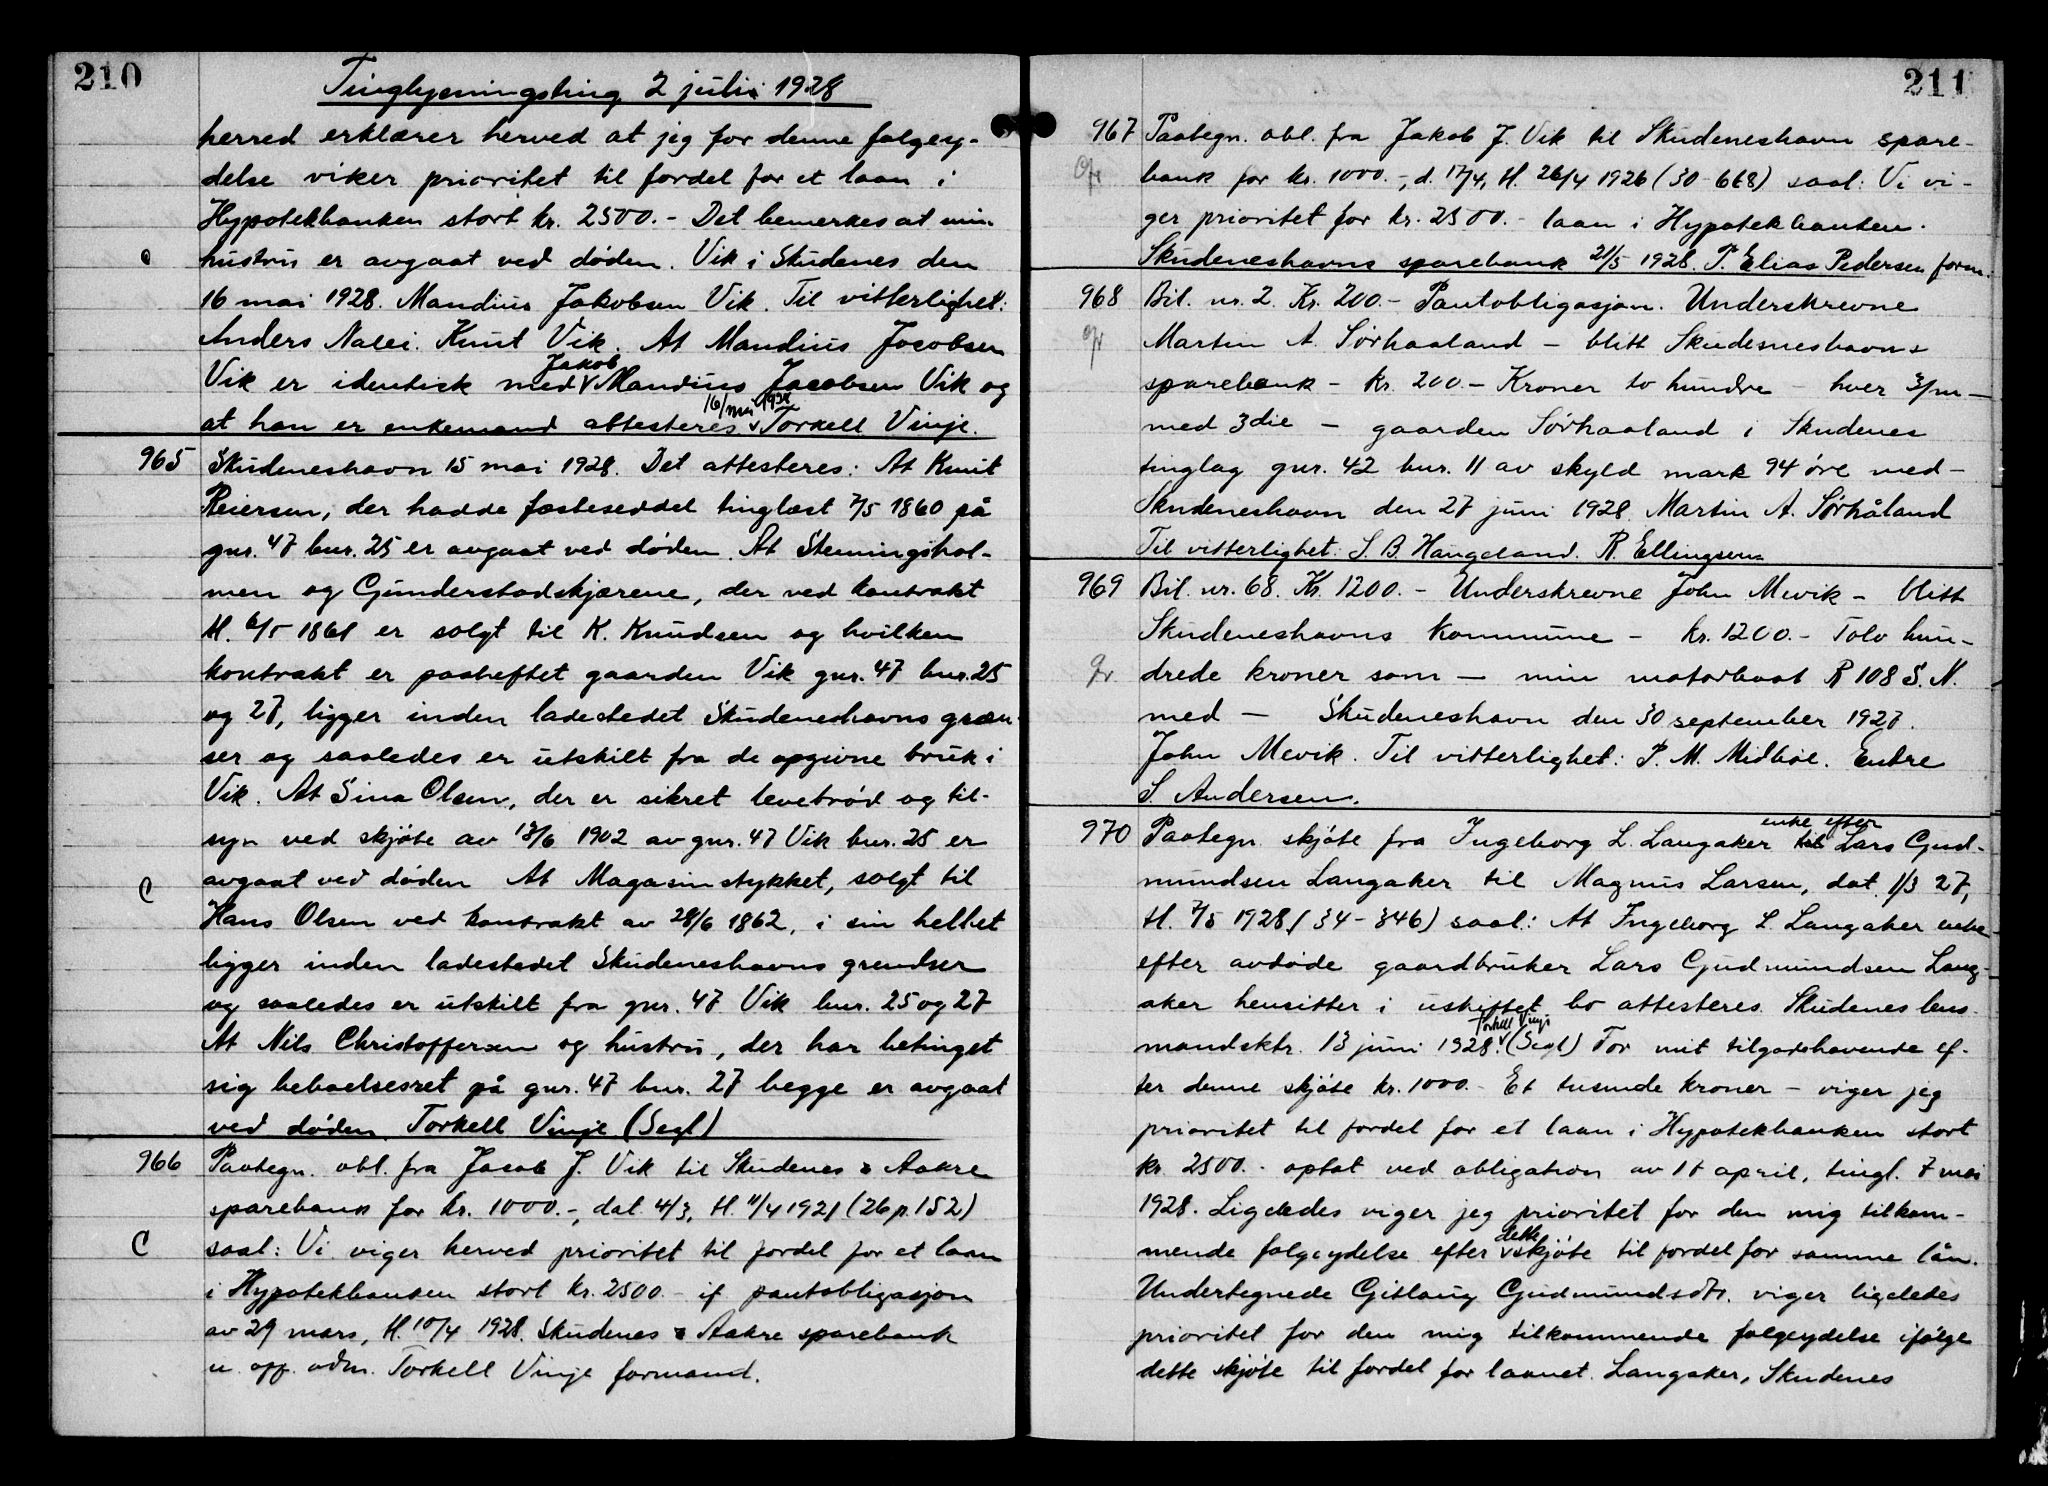 210
Tinglysningsting 2 juli 1928
herred erklærer herved at jeg for denne følgey-
delse viker prioritet til fordel for et laan i
Hypotekbanken stort kr. 2500.- Det bemerkes at min
hustru er avgaat ved døden. Vik i Skudenes den
16 mai 1928. Mandius Jakobsen Vik. Til vitterlighet:
Anders Nalei. Knut Vik. At Mandius Jacobsen
Jakob
Vik er identisk med Mandius Jacobsen Vik og
16/mai 1928
at han er enkemand attesteres Torkell Vinje.
965 Skudeneshavn 15 mai 1928. Det attesteres: At Knut
Reiersen, der hadde fæsteseddel tinglæst 7/5 1860 på
gnr. 47 bnr. 25 er avgaat ved døden. At Stemningshol-
men og Gunderstadskjærene, der ved kontrakt
tl. 6/5 1861 er solgt til K. Knudsen og hvilken
kontrakt er paaheftet gaarden Vik gnr. 47 bnr. 25
og 27, ligger inden ladestedet Skudeneshavns græn-
ser og saaledes er utskilt fra de opgivne bruk i
Vik. At Sina Olsen, der er sikret levebrød og til-
syn ved skjøte av 13/6 1902 av gnr. 47 Vik bnr. 25 er
avgaat ved døden At Magasinstykket, solgt til
C
Hans Olsen ved kontrakt av 28/6 1862, i sin helhet
ligger inden ladestedet Skudeneshavns grendser
og saaledes er utskilt fra gnr. 47 Vik bnr. 25 og 27
At Nils Christoffersen og hustru, der har betinget
sig beboelsesret på gnr. 47 bnr. 27 begge er avgaat
ved døden. Torkell Vinje (Segl)
966 Paategn. obl. fra Jacob J. Vik til Skudenes & Aakre
sparebank for kr. 1000.-, dat. 4/3, tl. 11/4 1921 (26 p. 152)
C saal: Vi viger herved prioritet til fordel for et laan
i Hypotekbanken stort kr. 2500.- if. pantobligasjon
av 29 mars, tl. 10/4 1928. Skudenes & Aakre sparebank
u. off. adm. Torkell Vinje formand.
211
967 Paategn. obl. fra Jakob J. Vik til Skudeneshavn spare-
bank for kr. 1000.-, d. 17/4, tl. 26/4 1926 (30-668) saal: Vi vi-
ger prioritet for kr. 2500.- laan i Hypotekbanken.
Skudeneshavns sparebank 21/5 1928. P. Elias Pedersen form.
968 Bil. nr. 2. Kr. 200.- Pantobligasjon. Underskrevne
Martin A. Sørhaaland – blitt Skudesneshavns
sparebank – kr. 200.- Kroner to hundre – hver 3/m –
med 3die – gaarden Sørhaaland i Skudenes
tinglag gnr. 42 bnr. 11 av skyld mark 94 øre med –
Skudeneshavn den 27 juni 1928. Martin A. Sørhåland
Til vitterlighet: S. B. Haugeland. R. Ellingsen
969 Bil. nr. 68. Kr. 1200.- Underskrevne John Mevik – blitt
Skudeneshavns kommune – kr. 1200.- Tolv hun-
drede kroner som – min motorbaat R 108 S. N.
med – Skudeneshavn den 30 september 1927.
John Mevik. Til vitterlighet: P. M. Midbøe. Endre
S. Andersen.
enke efter
970 Paategn. skjøte fra Ingeborg L. Langaker til Lars Gud-
mundsen Langaker til Magnus Larsen, dat. 1/3 27,
tl. 7/5 1928 (34-346) saal: At Ingeborg L. Langaker enke
efter avdøde gaardbruker Lars Gudmundsen Lang-
aker hensitter i uskiftet bo attesteres. Skudenes lens-
Torkell Vinje
mandsktr. 13 juni 1928. (Segl) For mit tilgodehavende ef-
ter denne skjøte kr. 1000.- Et tusinde kroner – viger jeg
prioritet til fordel for et laan i Hypotekbanken stort
kr. 2500.- optat ved obligation av 17 april, tingl. 7 mai
1928. Ligeledes viger jeg prioritet for den mig tilkom-
dette
mende følgeydelse efter skjøte til fordel for samme lån.
Undertegnede Gitlaug Gudmundsdtr. viger ligeledes
prioritet for den mig tilkommende følgeydelse ifølge
dette skjøte til fordel for laanet. Langaker, Skudenes